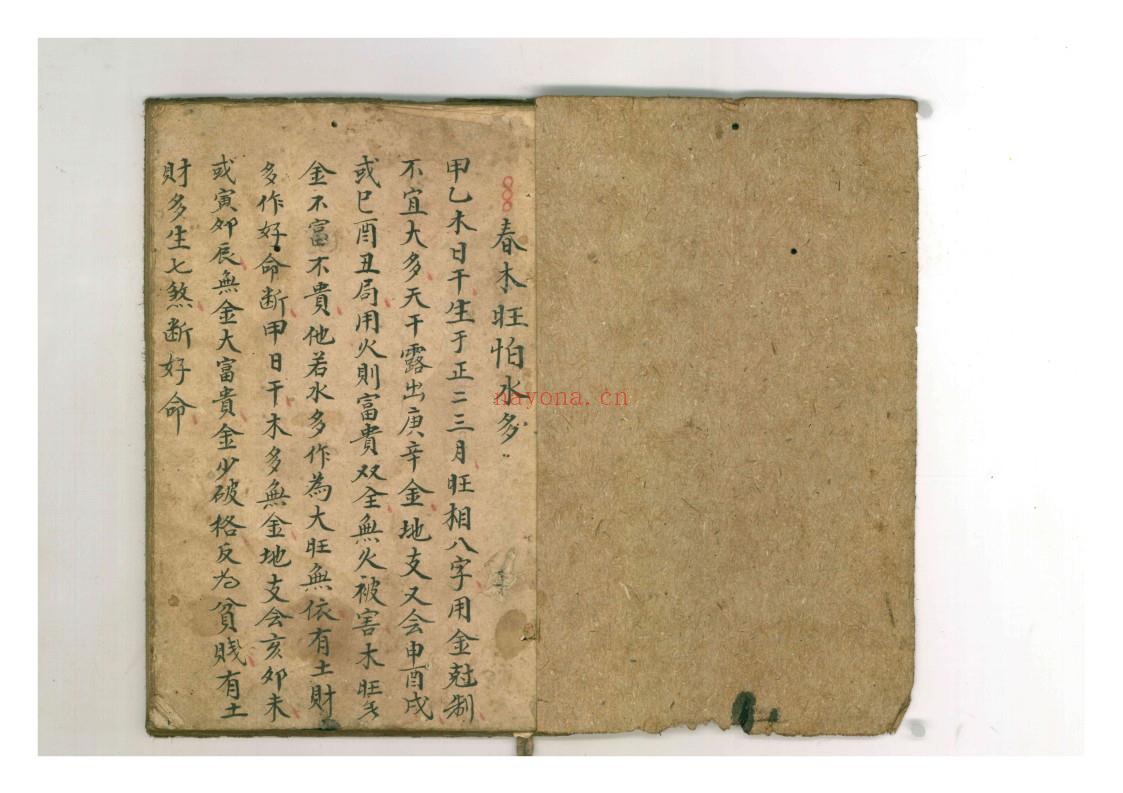 春木旺怕水多
甲乙木日干生于正二三月旺相八字用金尅制
不宜大多天干露出庚辛金地支又会申酉戌
或巳酉丑局用火則富貴双全無火被害木旺
金不富不貴他若水多作為大旺無依有土財
多作好命断甲日干木多無金地支会亥卯未
或寅卯辰無金大富貴金少破格反为貧賎有土
財多生七煞断好命
nayona.cn